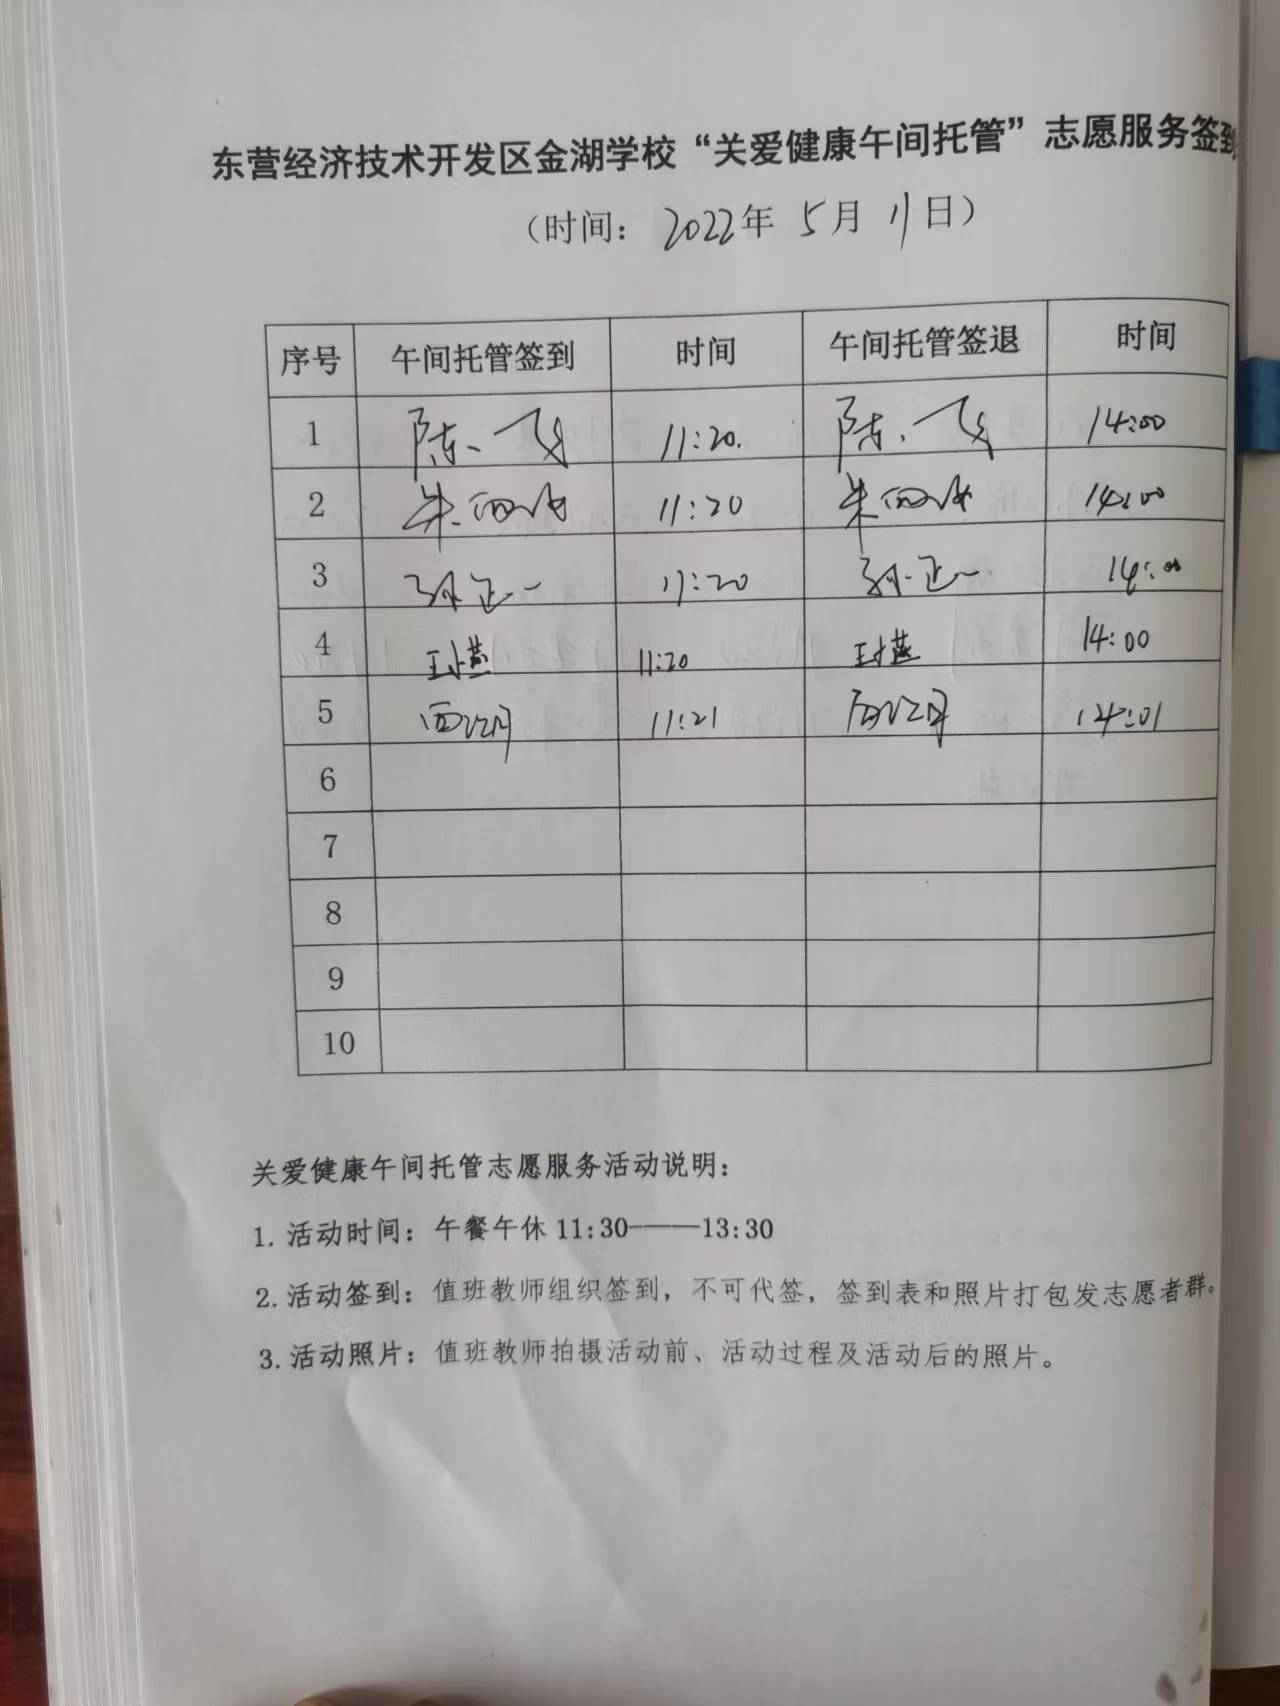 东营经济技术开发区金湖学校“关爱健康午间托管”志愿服务签到
（时间：2022年5月11日）
序号 午间托管签到 时间 午间托管签退 时间
1 陈飞 11:20. 陈飞 14:00
2 朱 11:20 朱 14:00
3 孙正一 11:20 孙正一 14:00
4 11:20 14:00
5 11:21 14:01
6
7
8
9
10
关爱健康午间托管志愿服务活动说明：
1. 活动时间：午餐午休 11:30——13:30
2. 活动签到：值班教师组织签到，不可代签，签到表和照片打包发志愿者群。
3. 活动照片：值班教师拍摄活动前、活动过程及活动后的照片。